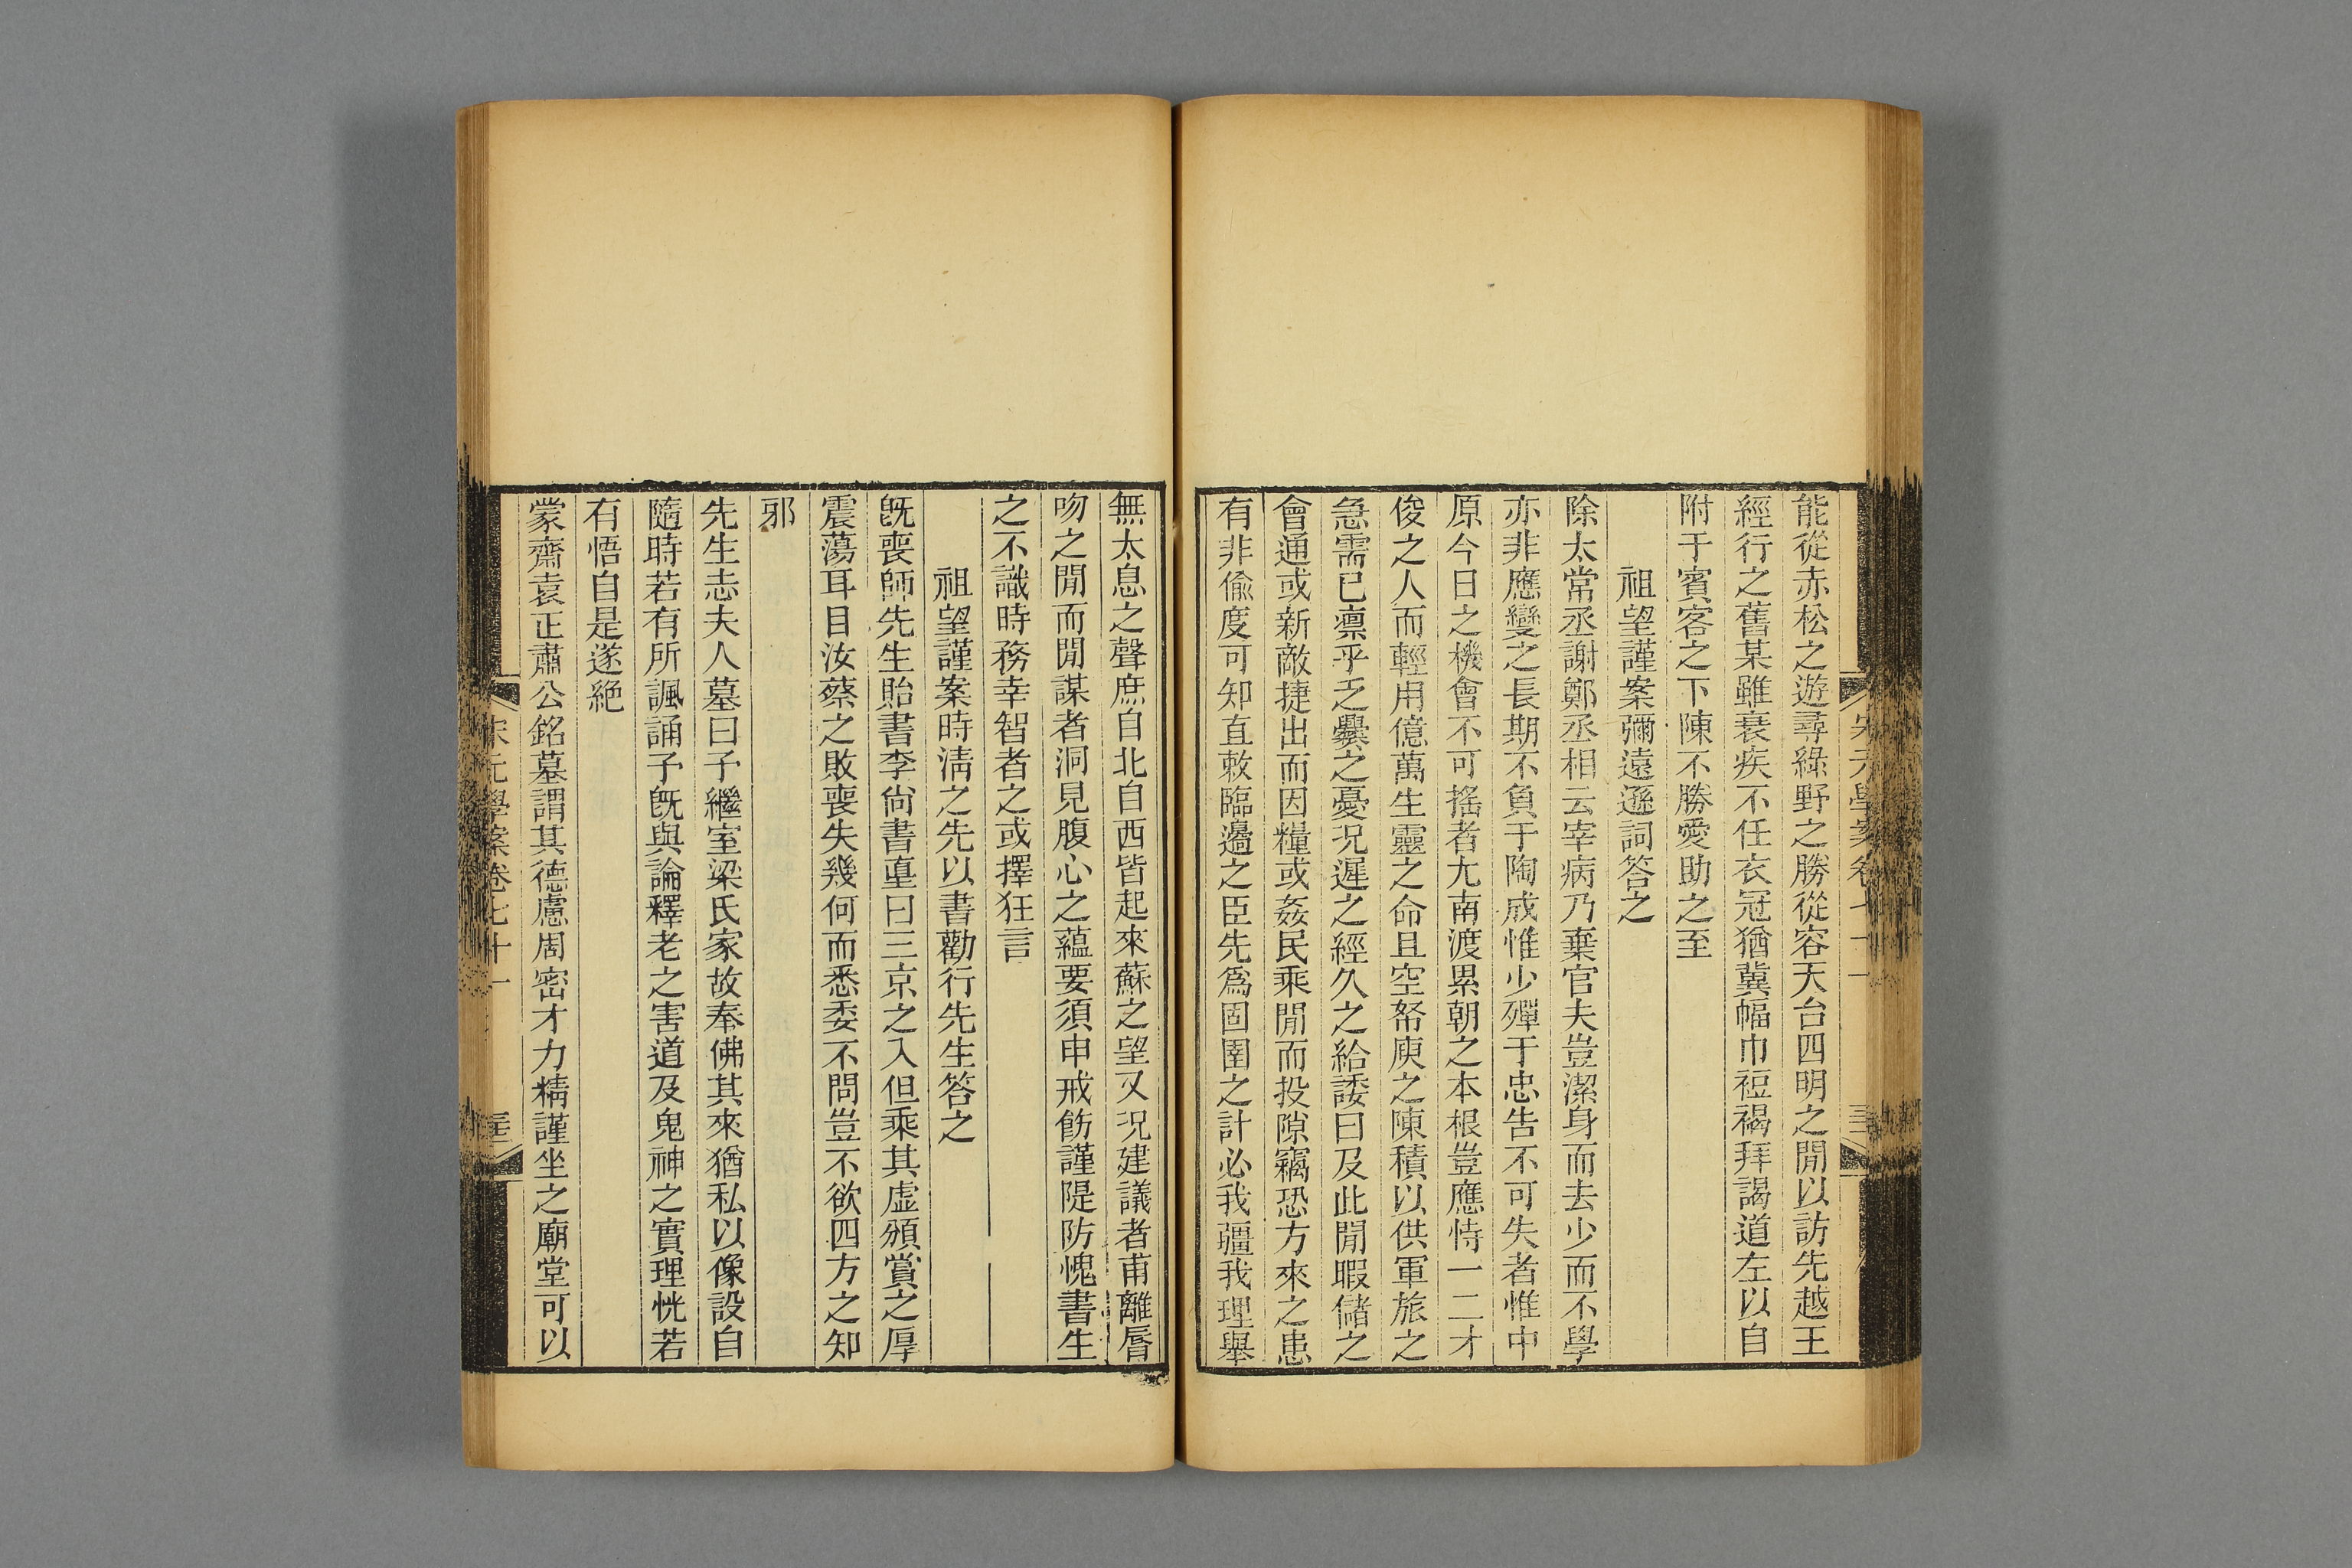 能從赤松之遊尋綠野之勝從容天台四明之閒以訪先越王
經行之舊某雖衰疾不任衣冠猶冀幅巾裋褐拜謁道左以自
附于賓客之下陳不勝愛助之至
祖望謹案彌遠遜詞答之
除太常丞謝鄭丞相云宰病乃棄官夫豈潔身而去少而不學
亦非應變之長期不負于陶成惟少殫于忠告不可失者惟中
原今日之機會不可搖者尢南渡累朝之本根豈應恃一二才
俊之人而輕用億萬生靈之命且空帑庾之陳積以供軍旅之
急需已凛乎乏爨之憂況遲之經久之給諉曰及此閒暇儲之
會通或新敵捷出而因糧或姦民乘閒而投隙竊恐方來之患
有非偸度可知直敕臨邊之臣先爲固圉之計必我疆我理舉
無太息之聲庶自北自西皆起來蘇之望又況建議者甫離脣
吻之閒而閒謀者洞見腹心之蘊要須申戒飭謹隄防愧書生
之不識時務幸智者之或擇狂言
祖望謹案時淸之先以書勸行先生答之
旣喪師先生貽書李尙書𡌴曰三京之入但乘其虛頒賞之厚
震蕩耳目汝蔡之敗喪失幾何而悉委不問豈不欲四方之知
邪
先生志夫人墓曰子繼室梁氏家故奉佛其來猶私以像設自
隨時若有所諷誦予旣與論釋老之害道及鬼神之實理恍若
有悟自是遂絕
蒙齋袁正肅公銘墓謂其德慮周密才力精謹坐之廟堂可以
宋元學案卷七十一